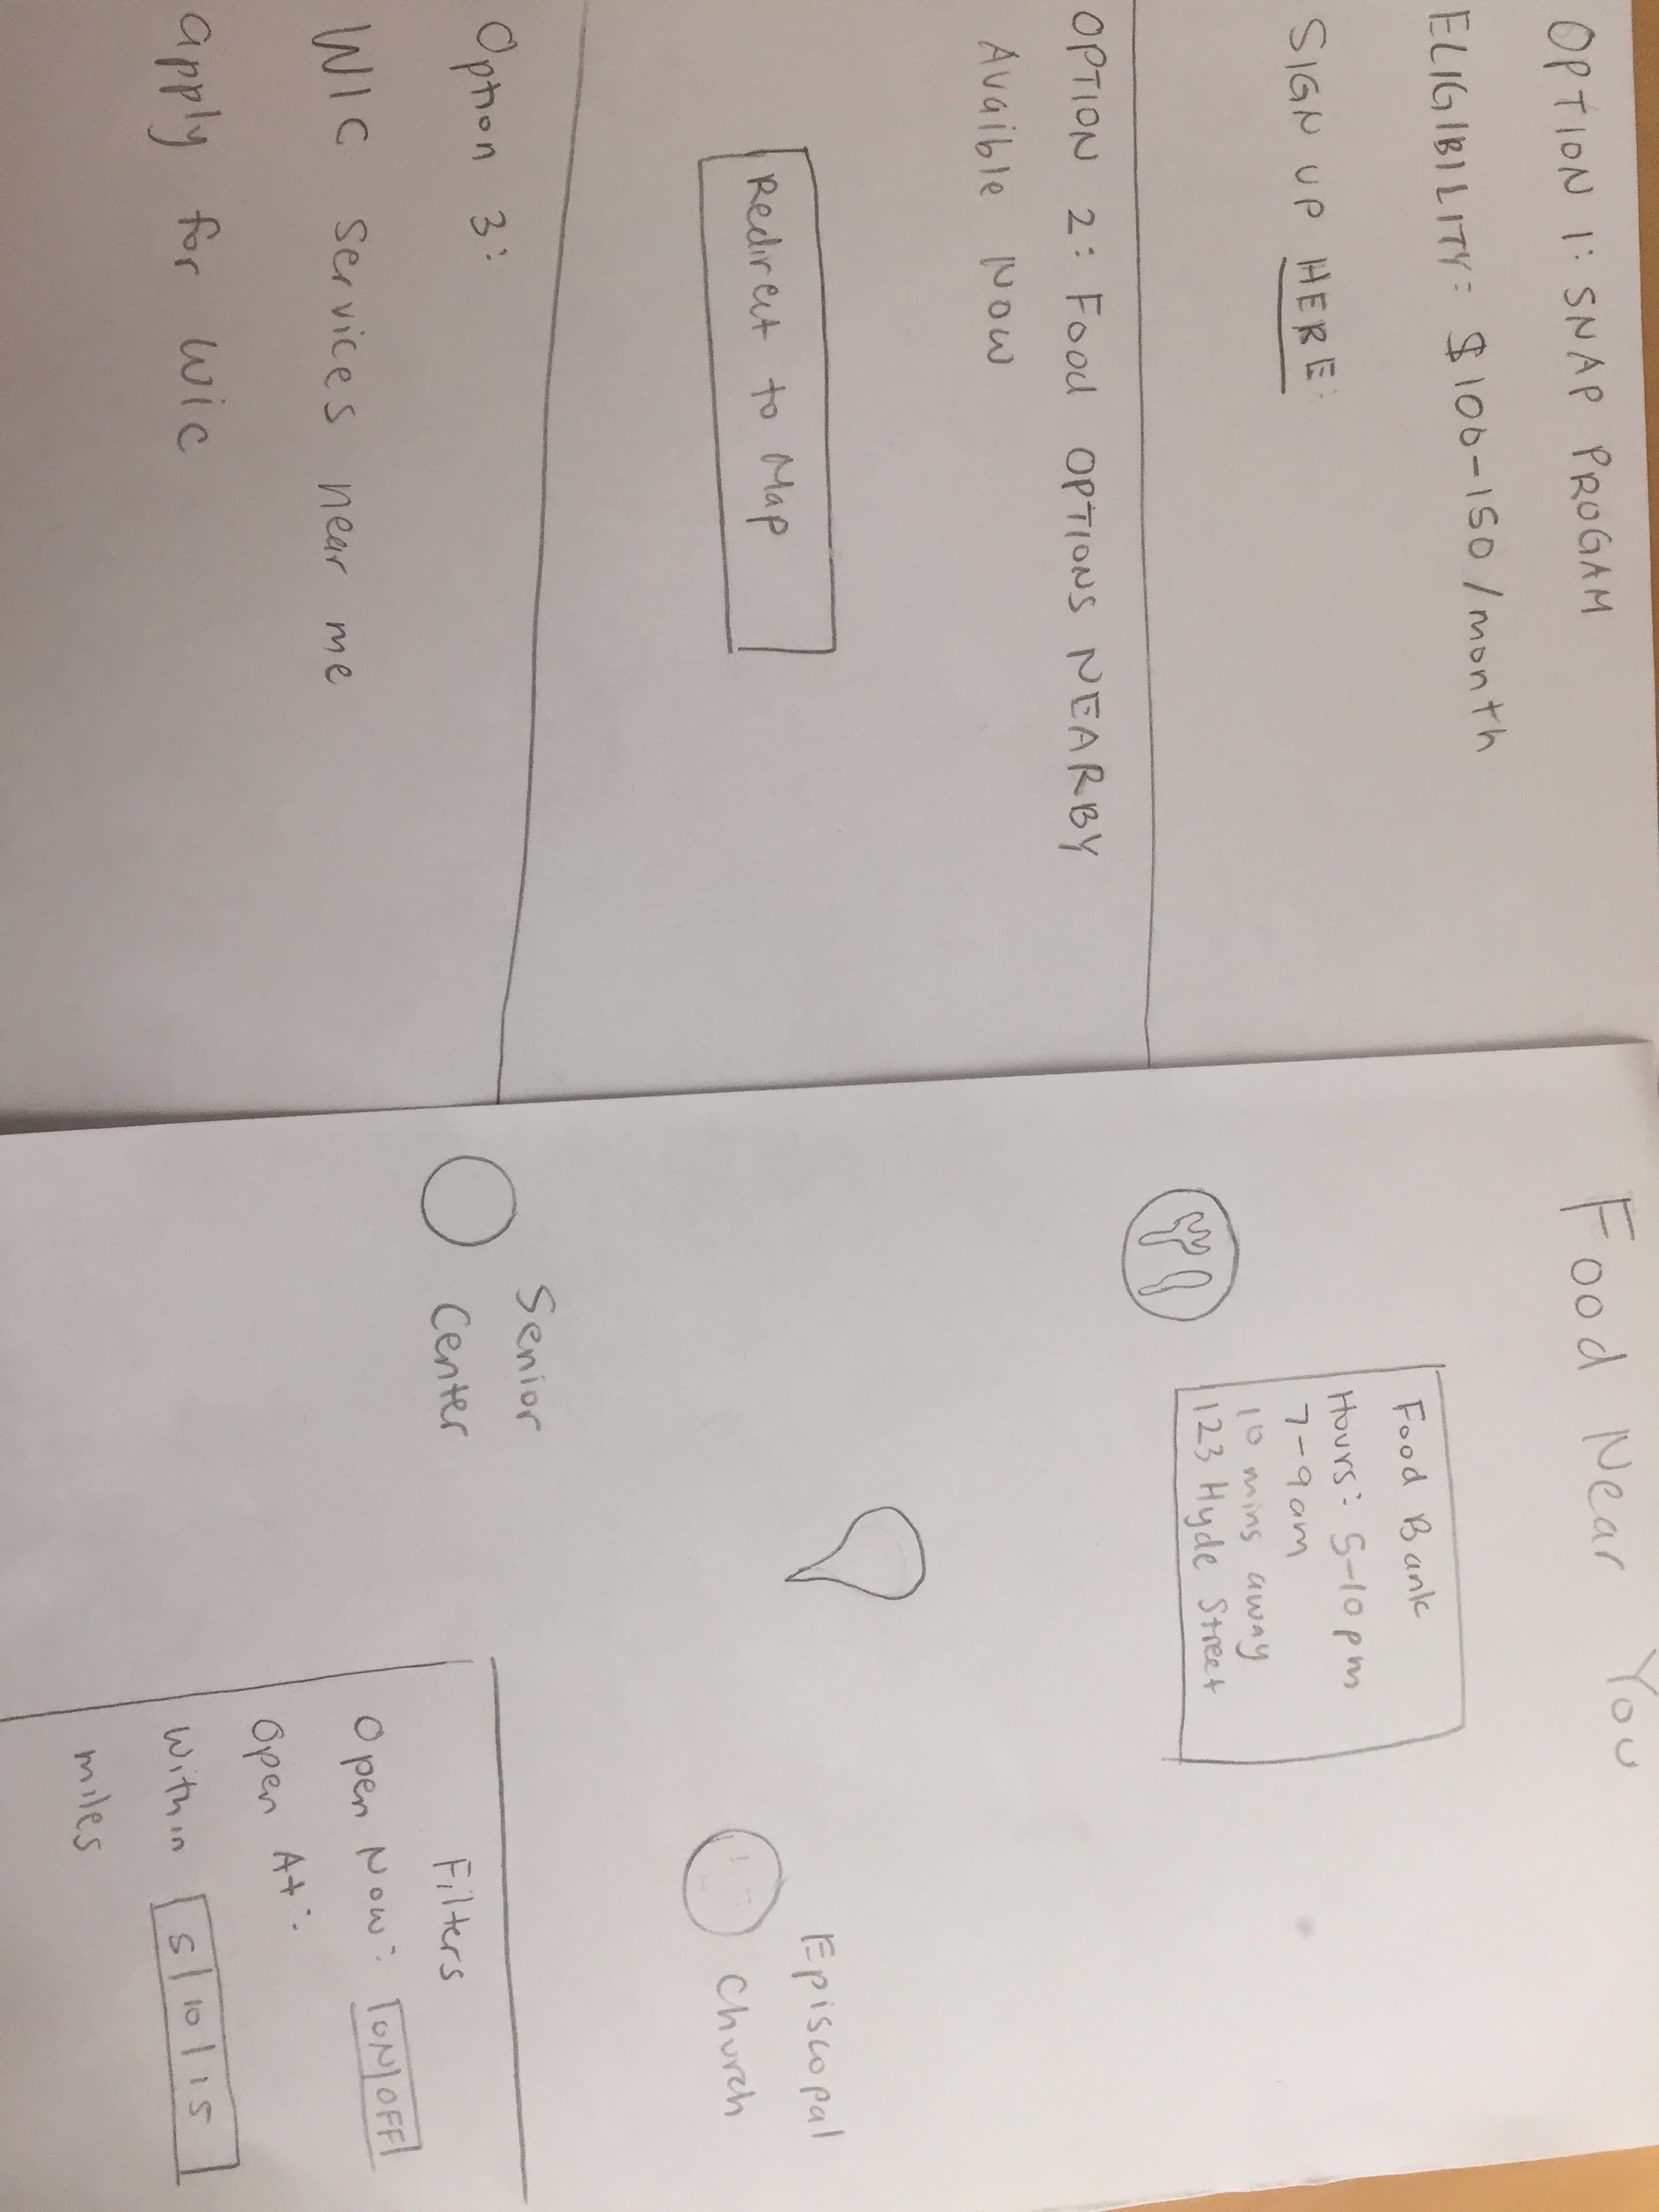 OPTION 1: SNAP PROGAM
ELIGIBILITY: $100-150/month
SIGN UP HERE:
OPTION 2: Food OPTIONS NEARBY
Avaible Now
Redirect to Map
Option 3:
WIC Services near me
apply for Wic
Food Near You
Food Bank
Hours: 5-10pm
7-9am
10 mins away
123 Hyde Street
Episcopal
Church
Senior
Center
Filters
Open Now: ON|OFF
Open At:
Within 5|10|15
miles